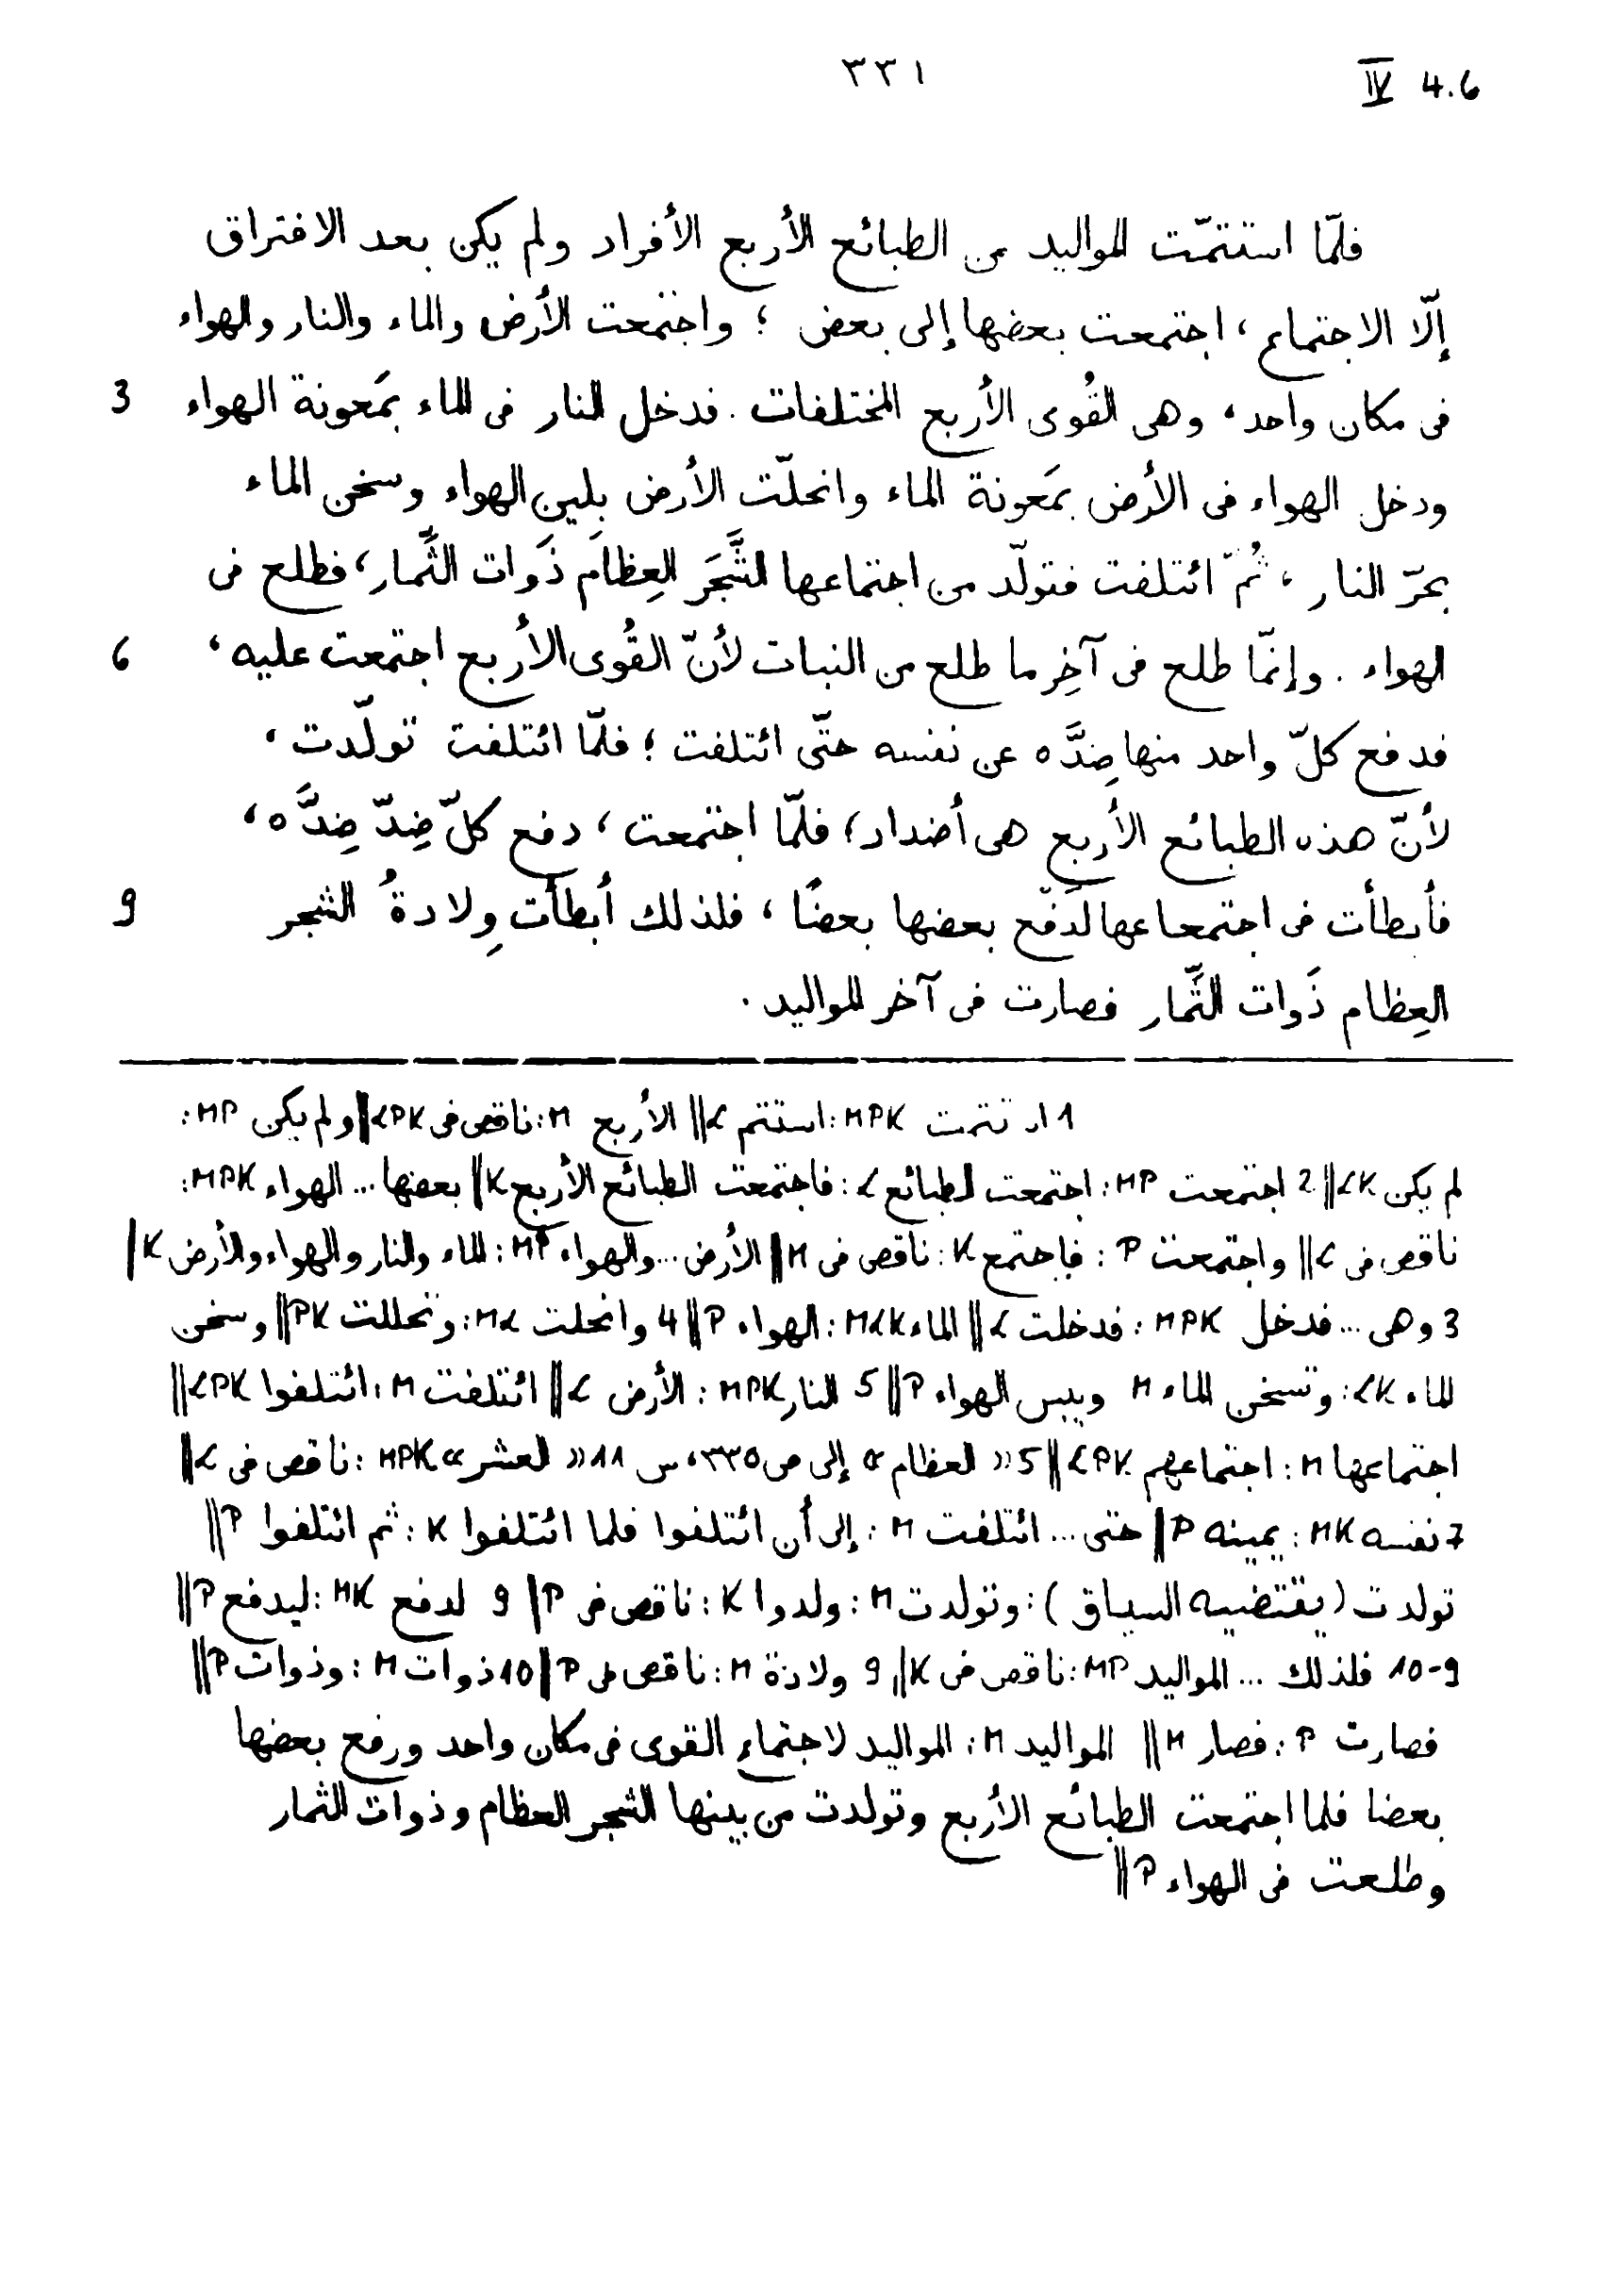 ٣٣١ IV 4.6
فلمّا استتمّت المواليد من الطبائع الأربع الأفراد ولم يكن بعد الافتراق
إلّا الاجتماع، اجتمعت بعضها إلى بعض؛ واجتمعت الأرض والماء والنار والهواء
فى مكان واحد، وهى القُوى الأربع المختلفات. فدخل النار فى الماء بمَعونة الهواء 3
ودخل الهواء فى الأرض بمَعونة الماء وانحلّت الأرض بِلين الهواء وسخن الماء
بحرّ النار، ثُمّ ائتلفت فتولّد من اجتماعها الشَّجَر العِظام ذَوات الثِّمار، فطلع فى
الهواء. وإنّما طلع فى آخِر ما طلع من النبات لأنّ القُوى الأربع اجتمعت عليه، 6
فدفع كلّ واحد منها ضِدَّه عن نفسه حتّى ائتلفت؛ فلمّا ائتلفت تولّدت،
لأنّ هذه الطبائع الأربع هى أضداد؛ فلمّا اجتمعت، دفع كلّ ضِدّ ضِدَّه،
فأبطأت فى اجتمعاعها لدَفع بعضها بعضًا، فلذلك أبطأت وِلادةُ الشجر 9
العِظام ذَوات الثِّمار فصارت فى آخر المواليد.
1 استتمت MPK: استتم L‖ الأربع M: ناقص فى LPK‖ ولم يكن MP:
لم يكن LK‖ 2 اجتمعت MP: اجتمعت الطبائع L: فاجتمعت الطبائع الأربع K‖ بعضها... الهواء MPK:
ناقص فى L‖ واجتمعت P: فاجتمع K: ناقص فى M‖ الأرض...والهواء MP: الماء والنار والهواء والأرض K‖
3 وهى...فدخل MPK: فدخلت L‖ الماء MLK: الهواء P‖ 4 وانحلت ML: وتحللت PK‖ وسخن
الماء LK: وتسخن الماء M ويبس الهواء P‖ 5 النار MPK: الأرض L‖ ائتلفت M: ائتلفوا LPK‖
اجتماعها M: اجتماعهم LPK‖ 5 «العظام» إلى ص ٣٣٥، س ١١ «العشر» MPK: ناقص فى L‖
7 نفسه MK: يمينه P‖ حتى... ائتلفت M: إلى أن ائتلفوا فلما ائتلفوا K: ثم ائتلفوا P‖
تولدت (يقتضيه السياق): وتولدت M: ولدوا K: ناقص فى P‖ 9 لدفع MK: ليدفع P‖
9-10 فلذلك... المواليد MP: ناقص فى K‖ 9 ولادة M: ناقص فى P‖ 10 ذوات M: وذوات P‖
فصارت P: فصار M‖ المواليد M: المواليد لاجتماع القوى فى مكان واحد ورفع بعضها
بعضا فلما اجتمعت الطبائع الأربع وتولدت من بينها الشجر العظام وذوات الثمار
وطلعت فى الهواء P‖